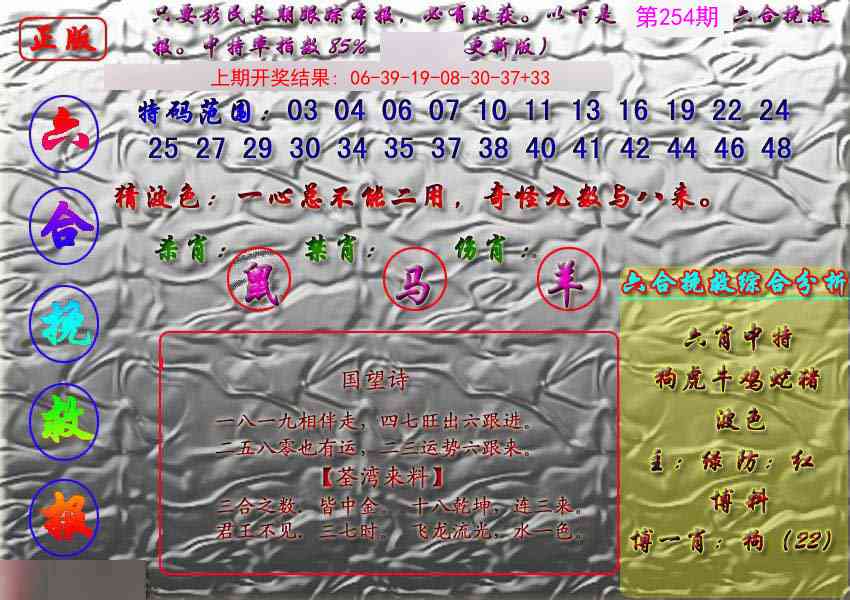 正版
只要彩民长期跟踪本报，必有收获。以下是 第254期 六合挽救
报。中特率指数85% 更新版）
上期开奖结果: 06-39-19-08-30-37+33
特码范围: 03 04 06 07 10 11 13 16 19 22 24
25 27 29 30 34 35 37 38 40 41 42 44 46 48
猜波色：一心总不能二用，奇怪九数与八来。
杀肖： 禁肖： 伤肖：
鼠 马 羊
六
合
挽
救
报
国望诗
一八一九相伴走，四七旺出六跟进。
二五八零也有运，二三运势六跟来。
【荃湾来料】
三合之数．皆中金。 十八乾坤．连三来。
君王不见．三七时。 飞龙流光，水一色。
六合挽救综合分析
六肖中特
狗虎牛鸡蛇猪
波色
主：绿 防：红
博料
博一肖：狗（22）